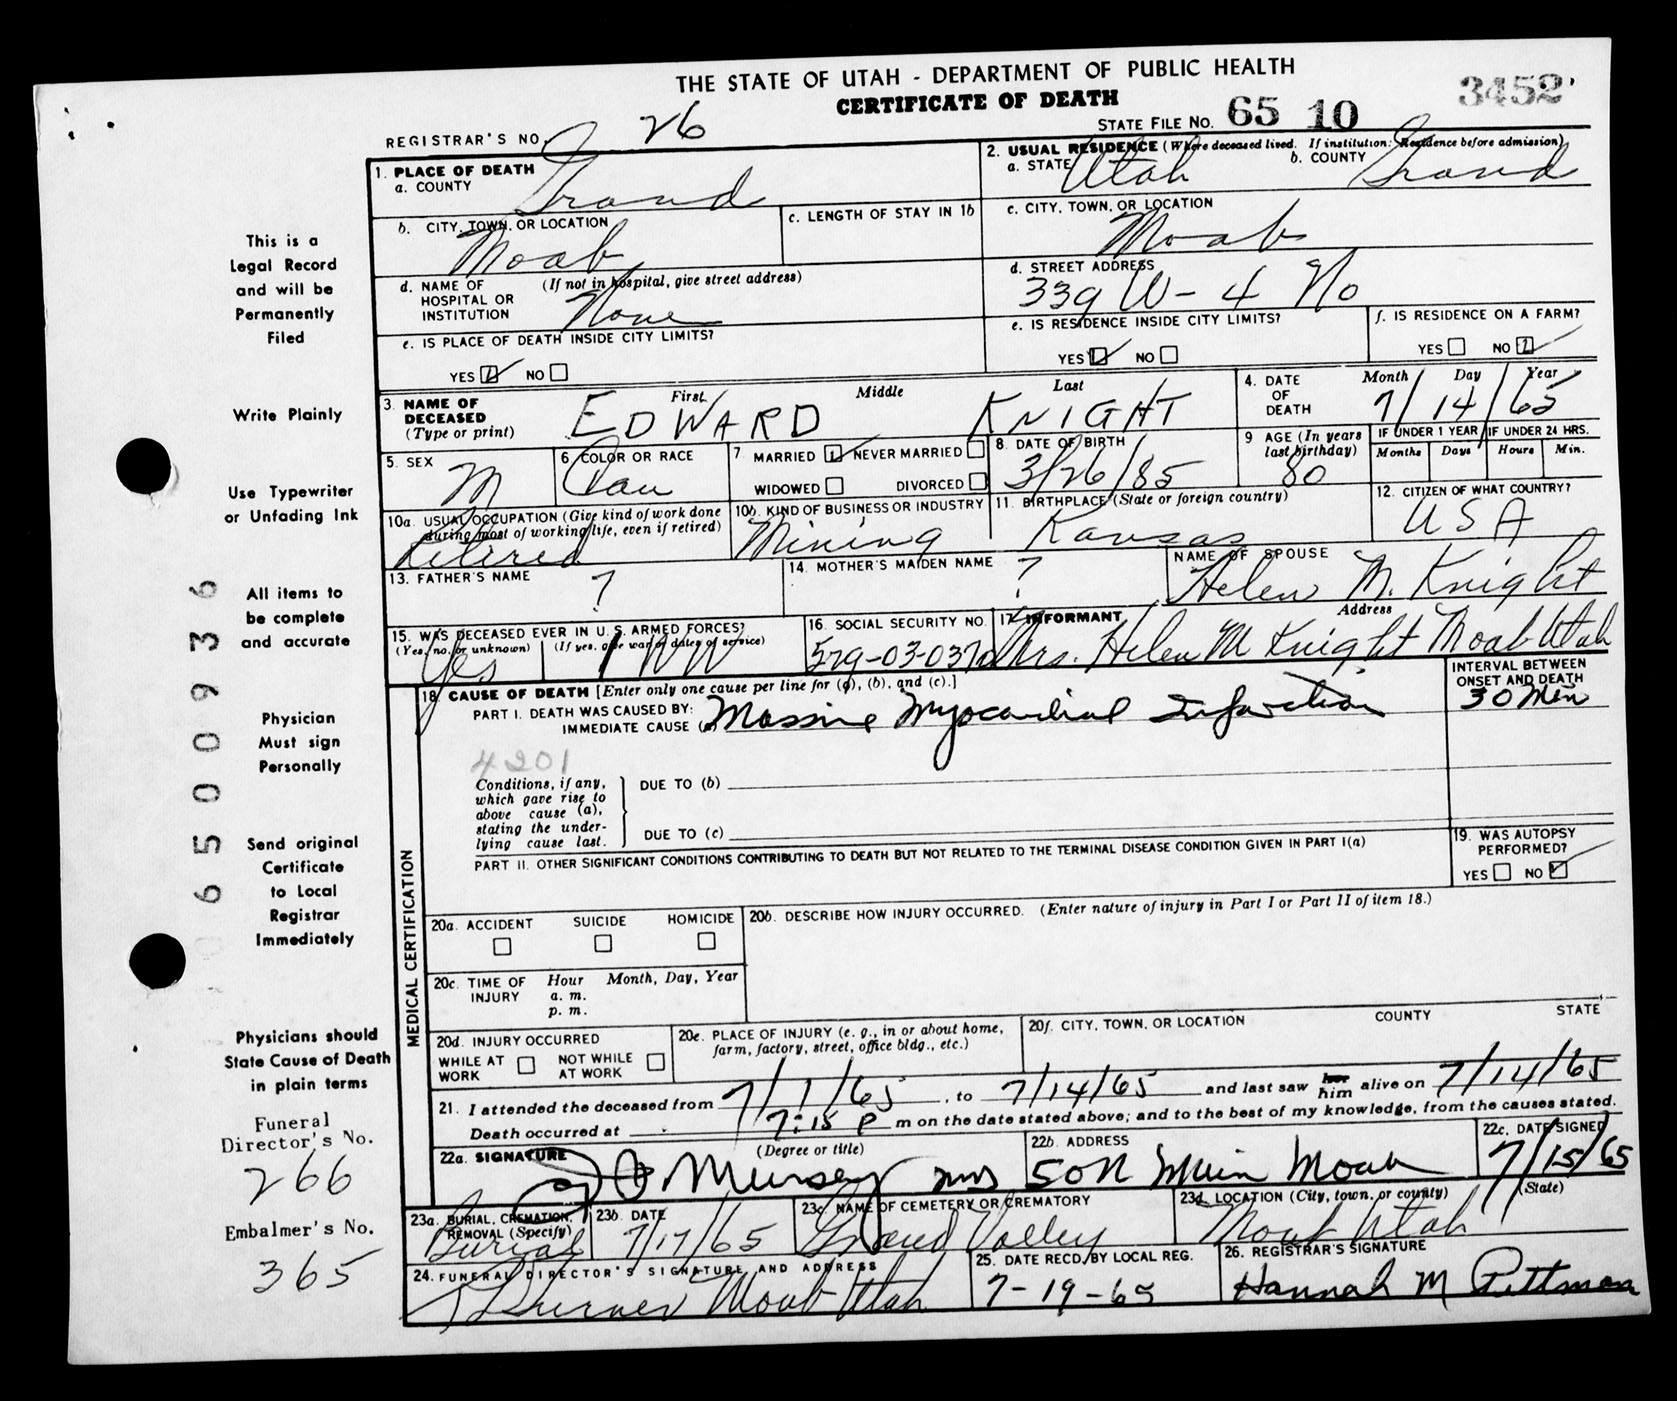 THE STATE OF UTAH - DEPARTMENT OF PUBLIC HEALTH
CERTIFICATE OF DEATH
3452
REGISTRAR'S NO. 26
STATE FILE NO. 65 10
1. PLACE OF DEATH
a. COUNTY Grand
2. USUAL RESIDENCE (Where deceased lived. If institution: Residence before admission)
a. STATE Utah b. COUNTY Grand
b. CITY, TOWN, OR LOCATION Moab
c. LENGTH OF STAY IN 1b
c. CITY, TOWN, OR LOCATION Moab
d. NAME OF HOSPITAL OR INSTITUTION (If not in hospital, give street address) None
d. STREET ADDRESS 339 W - 4 No
e. IS PLACE OF DEATH INSIDE CITY LIMITS?
YES NO
e. IS RESIDENCE INSIDE CITY LIMITS?
YES NO
f. IS RESIDENCE ON A FARM?
YES NO
3. NAME OF DECEASED (Type or print)
First Middle Last
EDWARD KNIGHT
4. DATE OF DEATH Month Day Year
7/14/65
5. SEX M
6 COLOR OR RACE Cau
7 MARRIED NEVER MARRIED
WIDOWED DIVORCED
8. DATE OF BIRTH 3/26/85
9 AGE (In years last birthday) 80
IF UNDER 1 YEAR Months Days
IF UNDER 24 HRS. Hours Min.
10a. USUAL OCCUPATION (Give kind of work done during most of working life, even if retired) Retired
10b. KIND OF BUSINESS OR INDUSTRY Mining
11. BIRTHPLACE (State or foreign country) Kansas
12. CITIZEN OF WHAT COUNTRY? USA
13. FATHER'S NAME ?
14. MOTHER'S MAIDEN NAME ?
NAME OF SPOUSE Helen M. Knight
15. WAS DECEASED EVER IN U. S. ARMED FORCES?
(Yes, no, or unknown) (If yes, give war or dates of service)
Yes 1 WW
16. SOCIAL SECURITY NO. 529-03-0370
17. INFORMANT Address
Mrs. Helen M Knight Moab Utah
18. CAUSE OF DEATH [Enter only one cause per line for (a), (b), and (c).]
INTERVAL BETWEEN ONSET AND DEATH
PART I. DEATH WAS CAUSED BY:
IMMEDIATE CAUSE (a) Massive Myocardial Infarction 30 Min
4201
Conditions, if any, which gave rise to above cause (a), stating the underlying cause last.
DUE TO (b)
DUE TO (c)
PART II. OTHER SIGNIFICANT CONDITIONS CONTRIBUTING TO DEATH BUT NOT RELATED TO THE TERMINAL DISEASE CONDITION GIVEN IN PART I(a)
19. WAS AUTOPSY PERFORMED?
YES NO
MEDICAL CERTIFICATION
20a. ACCIDENT SUICIDE HOMICIDE
20b. DESCRIBE HOW INJURY OCCURRED. (Enter nature of injury in Part I or Part II of item 18.)
20c. TIME OF INJURY Hour Month, Day, Year
a. m.
p. m.
20d. INJURY OCCURRED
WHILE AT WORK NOT WHILE AT WORK
20e. PLACE OF INJURY (e. g., in or about home, farm, factory, street, office bldg., etc.)
20f. CITY, TOWN, OR LOCATION COUNTY STATE
21. I attended the deceased from 7/1/65, to 7/14/65 and last saw her him alive on 7/14/65
Death occurred at 7:15 P m on the date stated above; and to the best of my knowledge, from the causes stated.
22a. SIGNATURE (Degree or title)
22b. ADDRESS 50 N Main Moab
22c. DATE SIGNED 7/15/65
23a. BURIAL, CREMATION, REMOVAL (Specify) Burial
23b. DATE 7/17/65
23c. NAME OF CEMETERY OR CREMATORY Grand Valley
23d. LOCATION (City, town, or county) (State)
Moab Utah
24. FUNERAL DIRECTOR'S SIGNATURE AND ADDRESS
Moab Utah
25. DATE RECD. BY LOCAL REG. 7-19-65
26. REGISTRAR'S SIGNATURE Hannah M Pittman
This is a
Legal Record
and will be
Permanently
Filed
Write Plainly
Use Typewriter
or Unfading Ink
All items to
be complete
and accurate
Physician
Must sign
Personally
Send original
Certificate
to Local
Registrar
Immediately
Physicians should
State Cause of Death
in plain terms
Funeral
Director's No.
266
Embalmer's No.
365
06500936